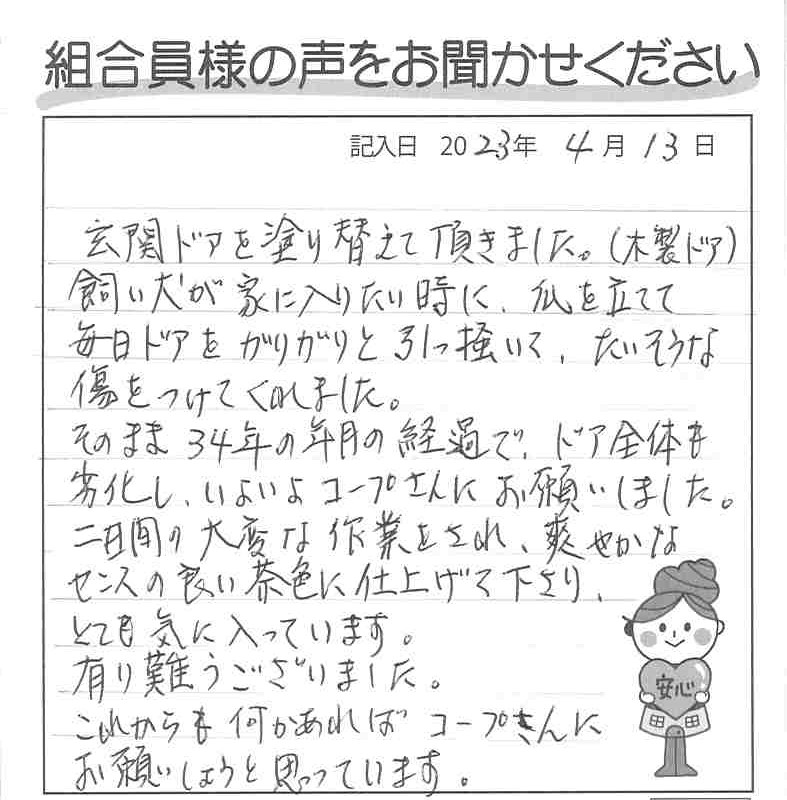 組合員様の声をお聞かせください
記入日 2023年 4月 13日
玄関ドアを塗り替えて頂きました。(木製ドア)
飼い犬が家に入りたい時に、爪を立てて
毎日ドアをガリガリと引っ掻いて、たいそうな
傷をつけてくれました。
そのまま34年の年月の経過で、ドア全体も
劣化し、いよいよコープさんにお願いしました。
二日間の大変な作業をされ、爽やかな
センスの良い茶色に仕上げて下さり、
とても気に入っています。
有り難うございました。
これからも何かあればコープさんに
お願いしようと思っています。
安心